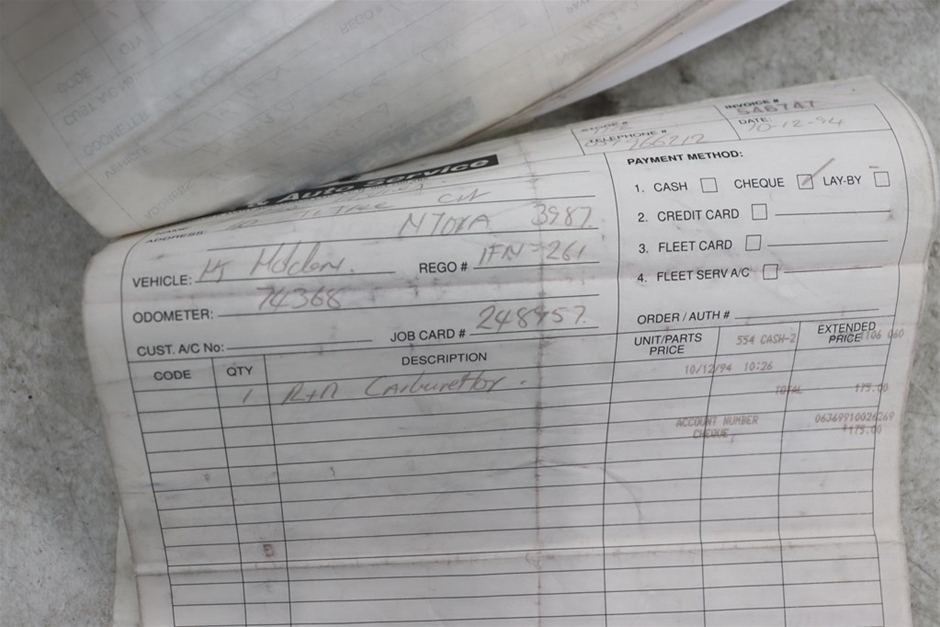 INVOICE #
TELEPHONE #
DATE: 10-12-94
& Auto Service
ADDRESS: Ti Tree
NTONA 3987.
VEHICLE: HJ Holden.
REGO # IFN=261
ODOMETER: 74368
CUST. A/C No:
JOB CARD # 248957.
PAYMENT METHOD:
1. CASH CHEQUE LAY-BY
2. CREDIT CARD
3. FLEET CARD
4. FLEET SERV A/C
ORDER / AUTH #
CODE QTY DESCRIPTION UNIT/PARTS PRICE EXTENDED PRICE
554 CASH-2
10/12/94 10:26
1 R+R Carburettor.
TOTAL 175.00
ACCOUNT NUMBER 06369910026269
CHEQUE, 175.00